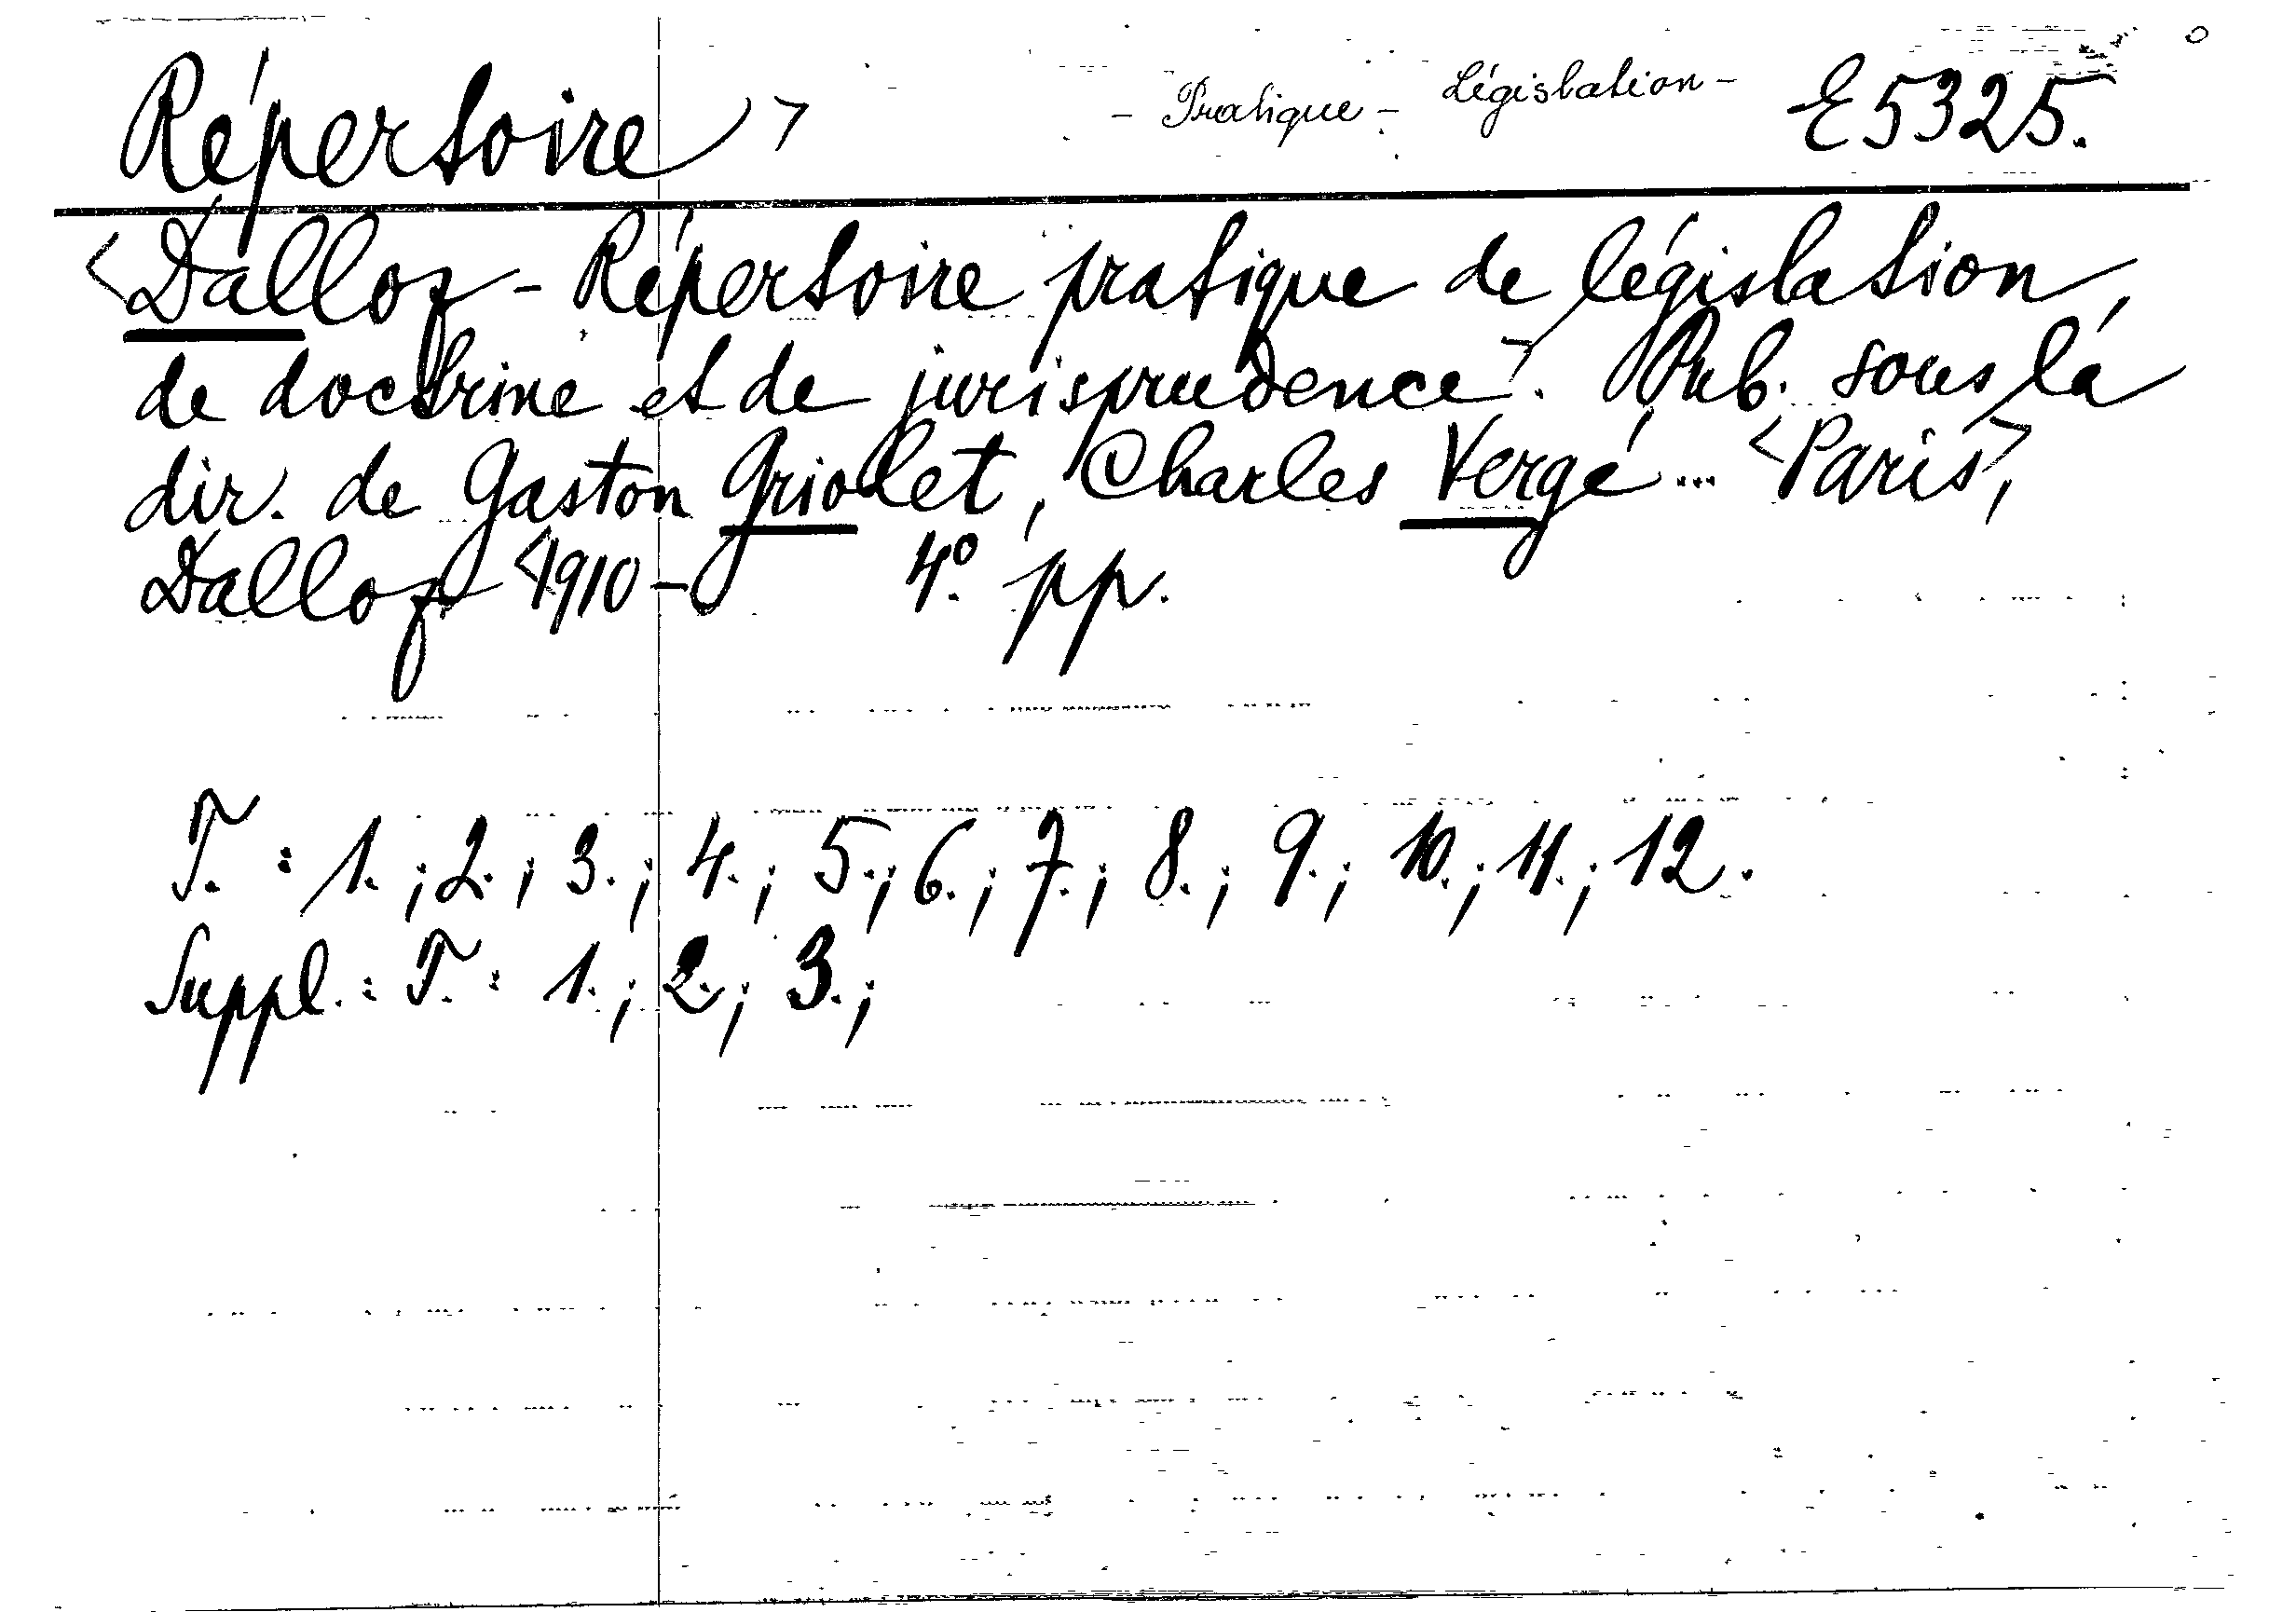 Répertoire > - Pratique - Législation - E5325.
<Dalloz - Répertoire pratique de législation,
de doctrine et de jurisprudence>. Pub. sous la
dir. de Gaston Griolet, Charles Vergé ... <Paris>,
Dalloz <1910- 4° pp.
T. : 1. ; 2. ; 3. ; 4. ; 5. ; 6. ; 7. ; 8. ; 9. ; 10. ; 11. ; 12.
Suppl. : T. : 1. ; 2. ; 3. ;